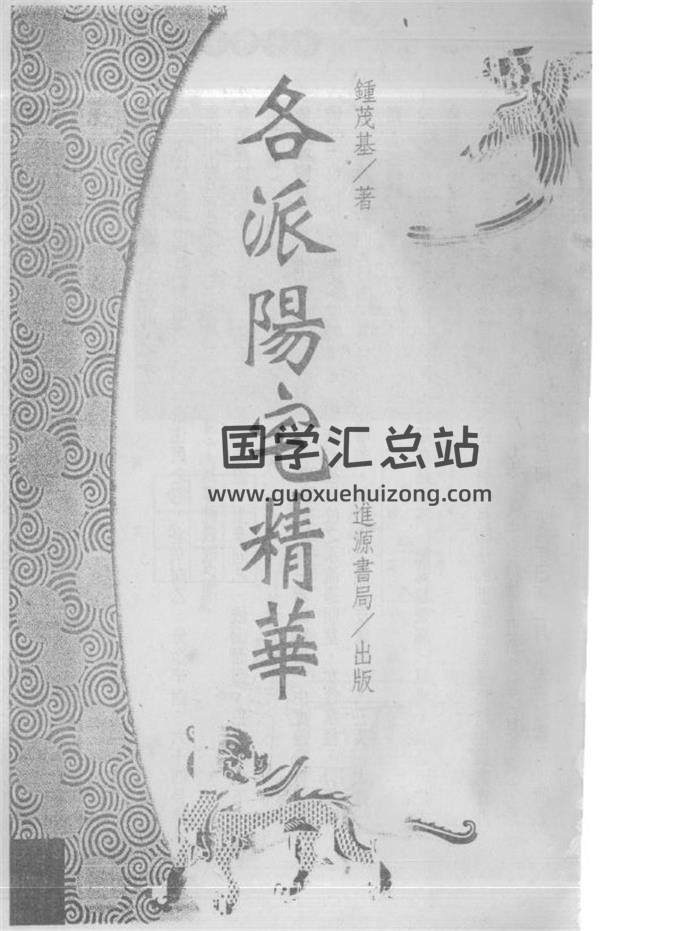 鍾茂基／著
各派陽宅精華
進源書局／出版
国学汇总站
www.guoxuehuizong.com